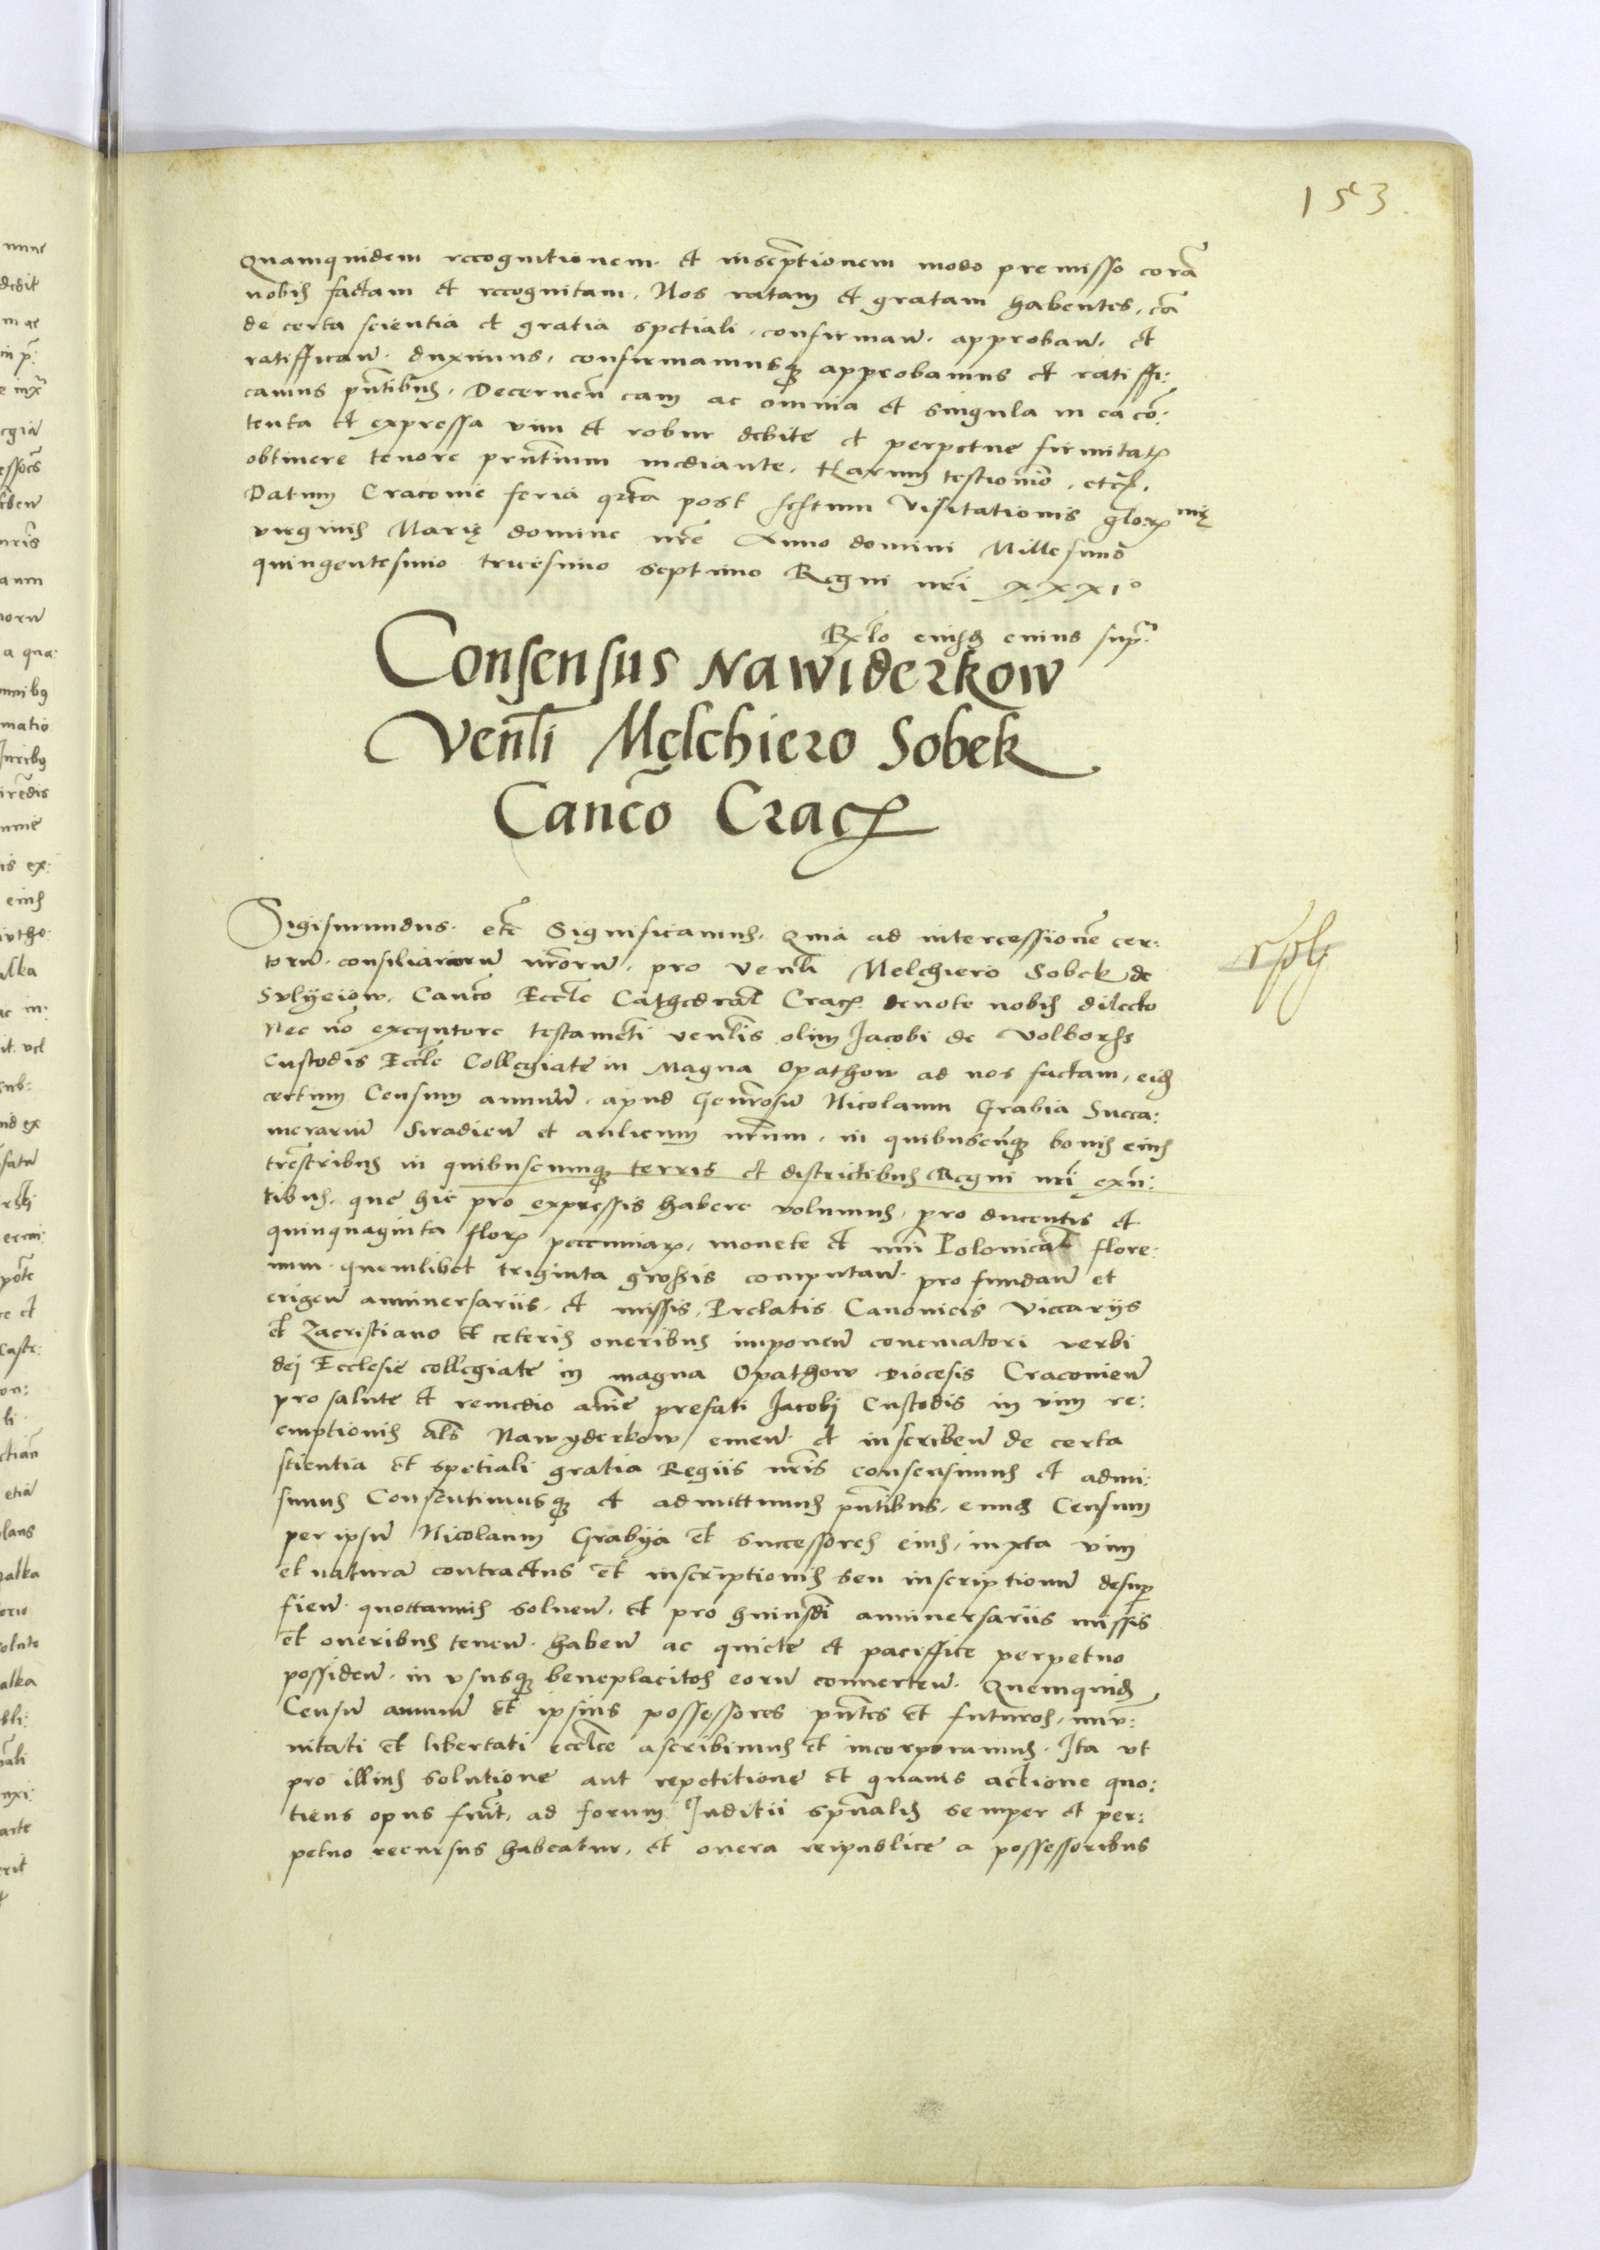 153.
Quamquidem recognitionem et inscriptionem modo premisso corā
nobis factam et recognitam, Nos ratam et gratam habentes, eā
de certa scientia et gratia spetiali, confirmanͫ. approbanͫ. et
ratifficanͫ. duximus, confirmamusqꝫ approbamus et ratiffi:
camus pn̄tibus. Decernen̄ eam ac omnia et singula in ea cō:
tenta et expressa vim et robur debite et perpetue firmitatꝭ
obtinere tenore pn̄tium mediante. Harum testimōio, etcꝭ.
Datum Cracovie feria qr̄ta post festum Visitationis gloꝝ nię
virginis Marię domine nr̄e Anno domini Millesimō
quingentesimo tricesimo septimo Regni nr̄i xxxiº
Relo eiusd̄ cuius supꝛ̄
Consensus Nawiderkow
Ven̄li Melchiero Sobek
Canc̄o Cracꝭ
Sigismundus. etc̄ Significamus. Quia ad intercessionē cer:
torū consiliariorū nr̄orū, pro ven̄li Melchiero Sobek de
Sulyeiow, Canc̄o Eccl̄e Cathedral̄ Cracꝭ devote nobis dilecto
Nec nō exequtore testamēti ven̄lis olim Jacobi de Volborsz
Custodis Eccl̄e Collegiate in Magna Opathow ad nos factam, eid̄
certum Censum annuū, apud Gen̄rosū Nicolaum Grabia Succa:
merariū Siradienͫ et aulicum nr̄um, in quibuscūqꝫ bonis eius
tr̄estribus in quibuscumqꝫ terris et districtibus Regni nr̄i exn̄:
tibus, que hic pro expressis habere volumus, pro ducentis et
quinquaginta florꝭ peccuniarꝭ, monete et nūi Polonical̄ flore:
num quemlibet triginta grossis computanͫ. pro fundanͫ et
erigenͫ anniversariis, et missis, Prelatis Canonicis Viccariis
et Zacristiano et ceteris oneribus imponenͫ concionatori verbi
dei Ecclesie collegiate in magna Opathow diocesis Cracovienͫ
pro salute et remedio aīe prefati Jacobi Custodis in vim re:
emptionis al̄s Nawyderkow, emenͫ et inscribenͫ de certa
scientia et spetiali gratia Regiis nr̄is consensimus et admi:
simus Consentimusqꝫ et admittimus pn̄tibus, eund̄ Censum
per ipsū Nicolaum Grabya et successores eius, iuxta vim
et naturā contractus et inscriptionis seu inscriptionū desuꝑ
fienͫ. quottannis solvenͫ, et pro huiusd̄i anniversariis missis
et oneribus tenenͫ. habenͫ ac quiete et paciffice perpetuo
possidenͫ. in ususqꝫ beneplacitos eorū convertenͫ. Quemquid̄
Censū annuū et ipsius possessores pn̄tes et futuros, imū:
nitati et libertati eccl̄ice ascribimus et incorporamus. Ita ut
pro illius solutione aut repetitione et quavis actione quo:
tiens opus fuerit, ad forum Juditii spūalis semper et per:
petuo recursus habeatur, et onera reipublice a possessoribus